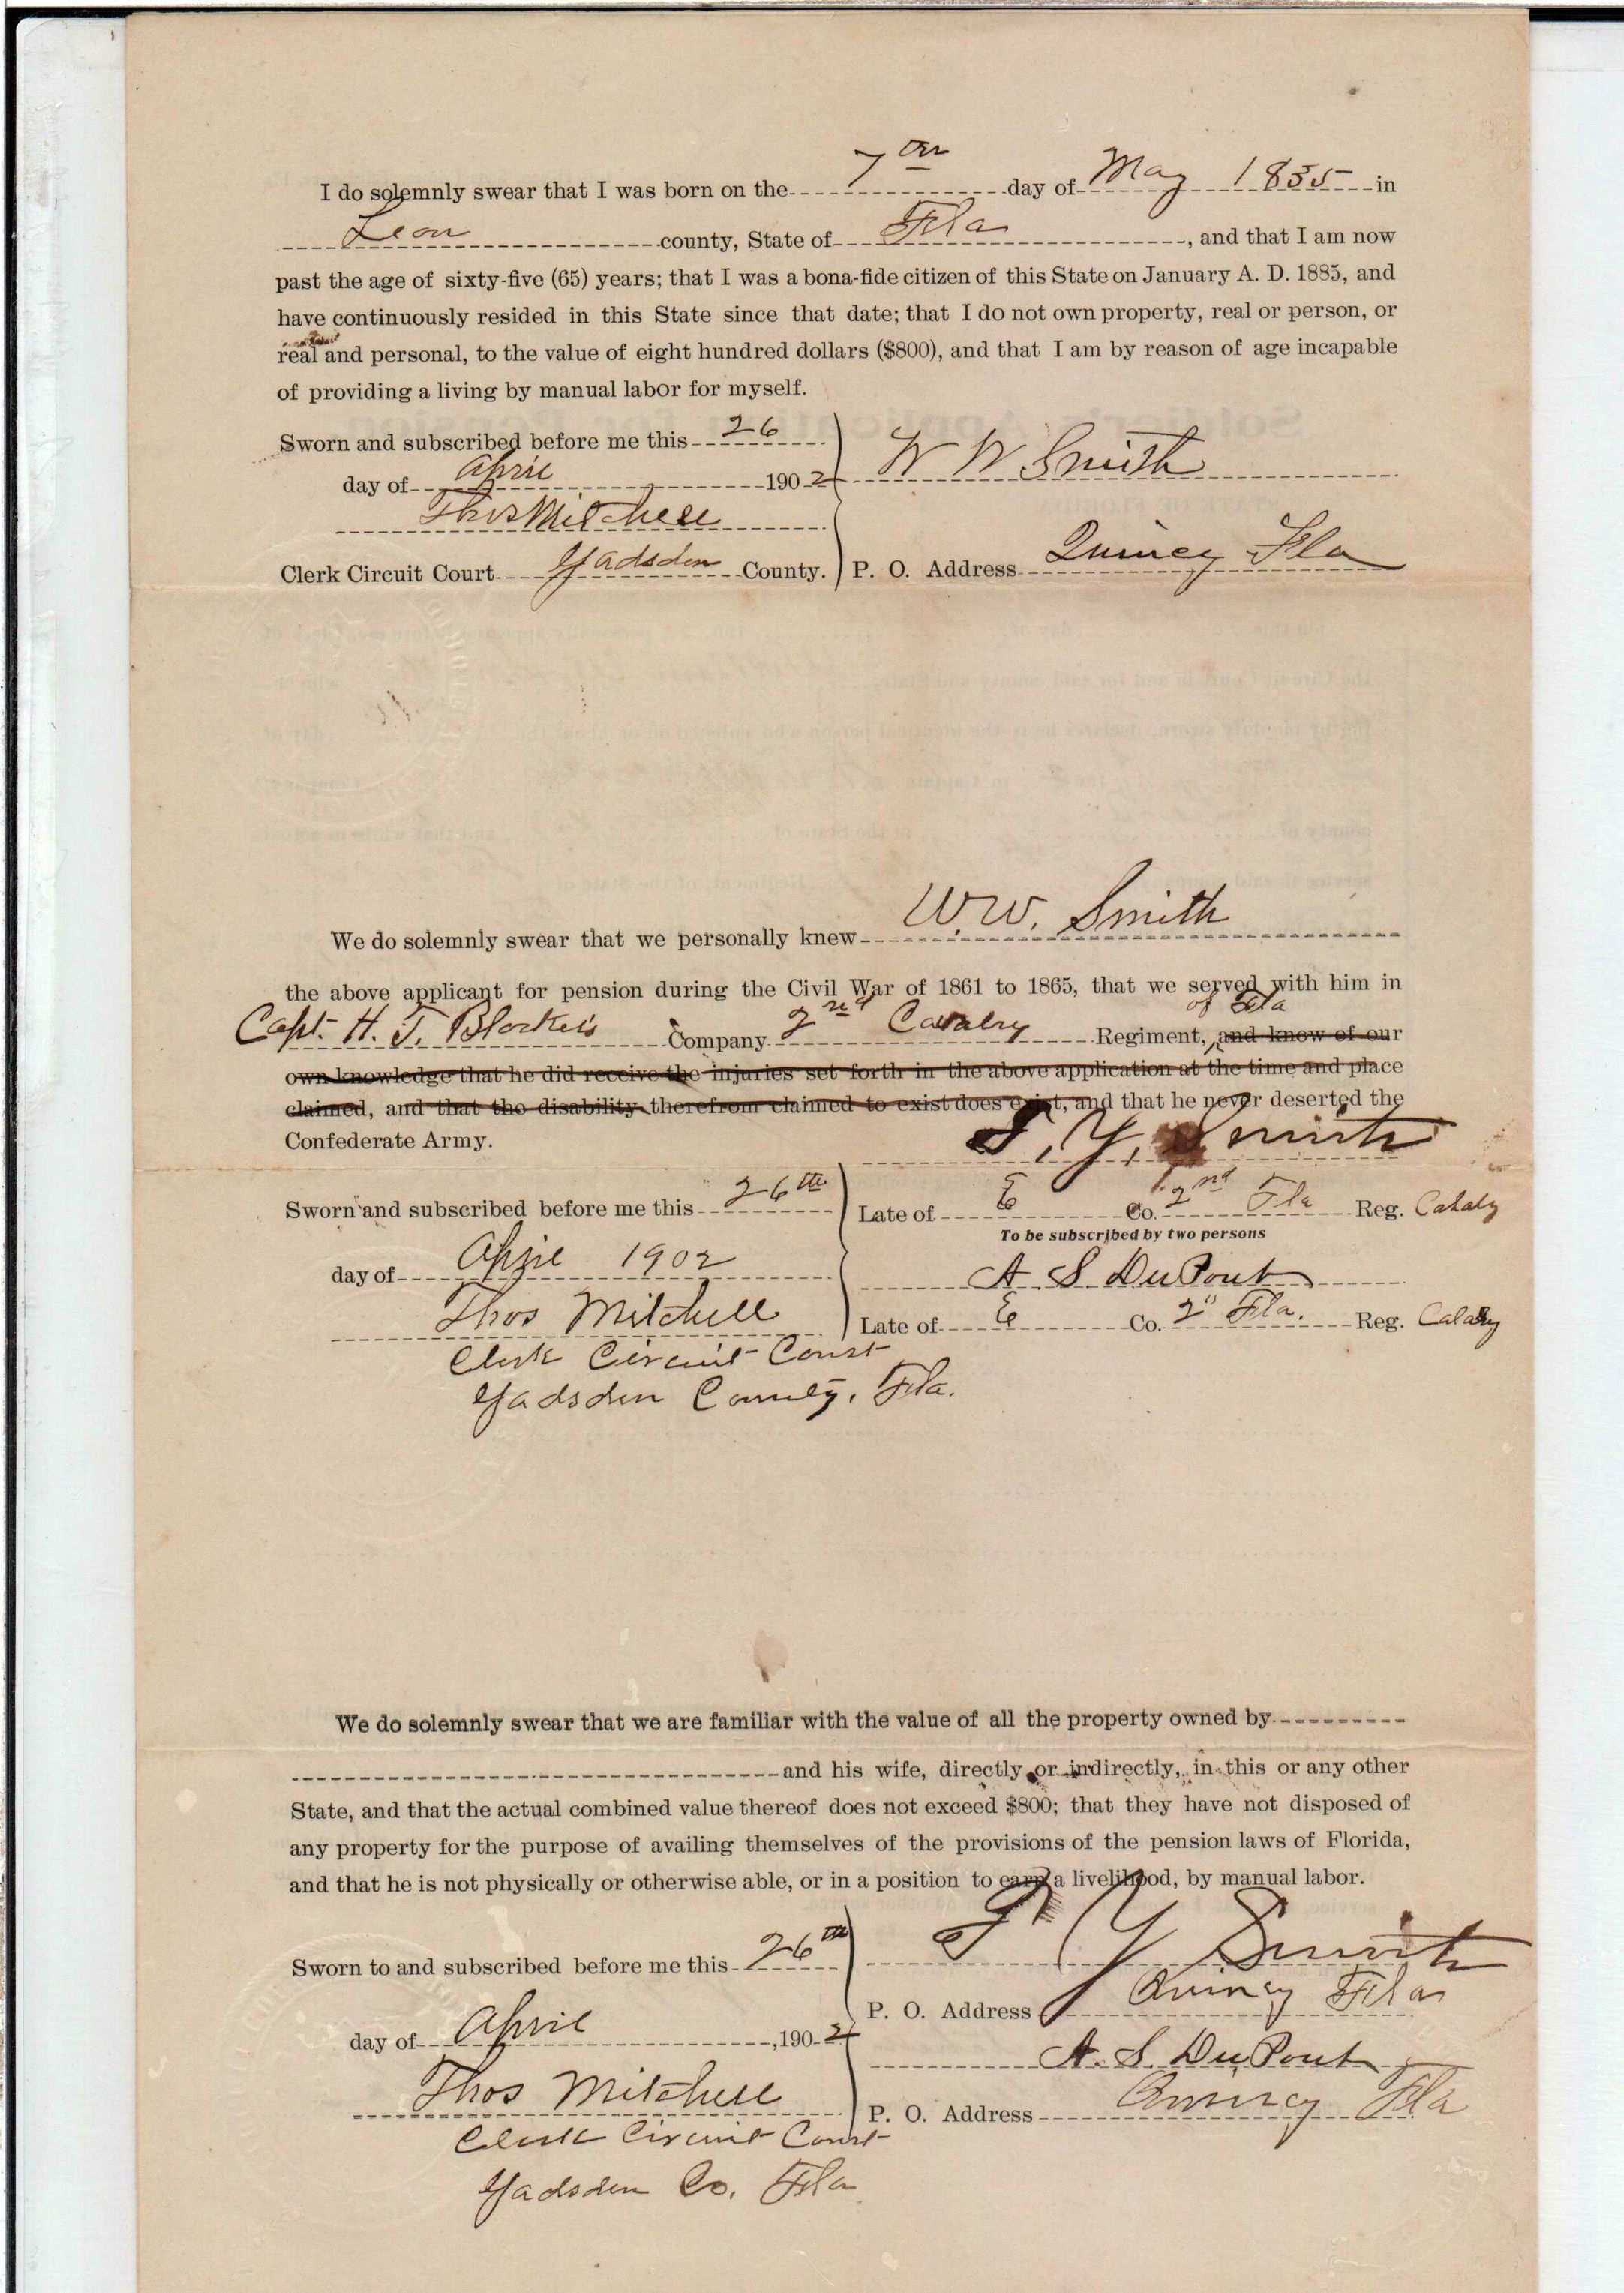 I do solemnly swear that I was born on the 7th day of May 1835 in
Leon county, State of Fla, and that I am now
past the age of sixty-five (65) years; that I was a bona-fide citizen of this State on January A. D. 1885, and
have continuously resided in this State since that date; that I do not own property, real or person, or
real and personal, to the value of eight hundred dollars ($800), and that I am by reason of age incapable
of providing a living by manual labor for myself.
Sworn and subscribed before me this 26
day of April 1902 W W Smith
Thos Mitchell
Clerk Circuit Court Gadsden County. P. O. Address Quincy Fla
We do solemnly swear that we personally knew W.W. Smith
the above applicant for pension during the Civil War of 1861 to 1865, that we served with him in
of Fla
Capt. H. T. Blocker's Company 2nd Cavalry Regiment, and know of our
own knowledge that he did receive the injuries set forth in the above application at the time and place
claimed, and that the disability therefrom claimed to exist does exist, and that he never deserted the
Confederate Army. T. Y. Smith
Sworn and subscribed before me this 26th Late of E Co. 2nd Fla Reg. Cavalry
To be subscribed by two persons
day of April 1902 A S DuPont
Thos Mitchell Late of E Co. 2" Fla. Reg. Cavalry
Clerk Circuit Court
Gadsden County, Fla.
We do solemnly swear that we are familiar with the value of all the property owned by
and his wife, directly or indirectly, in this or any other
State, and that the actual combined value thereof does not exceed $800; that they have not disposed of
any property for the purpose of availing themselves of the provisions of the pension laws of Florida,
and that he is not physically or otherwise able, or in a position to earn a livelihood, by manual labor.
Sworn to and subscribed before me this 26th T Y Smith
P. O. Address Quincy Fla
day of April, 1902
A. S. DuPont
Thos Mitchell P. O. Address Quincy Fla
Clerk Circuit Court
Gadsden Co. Fla